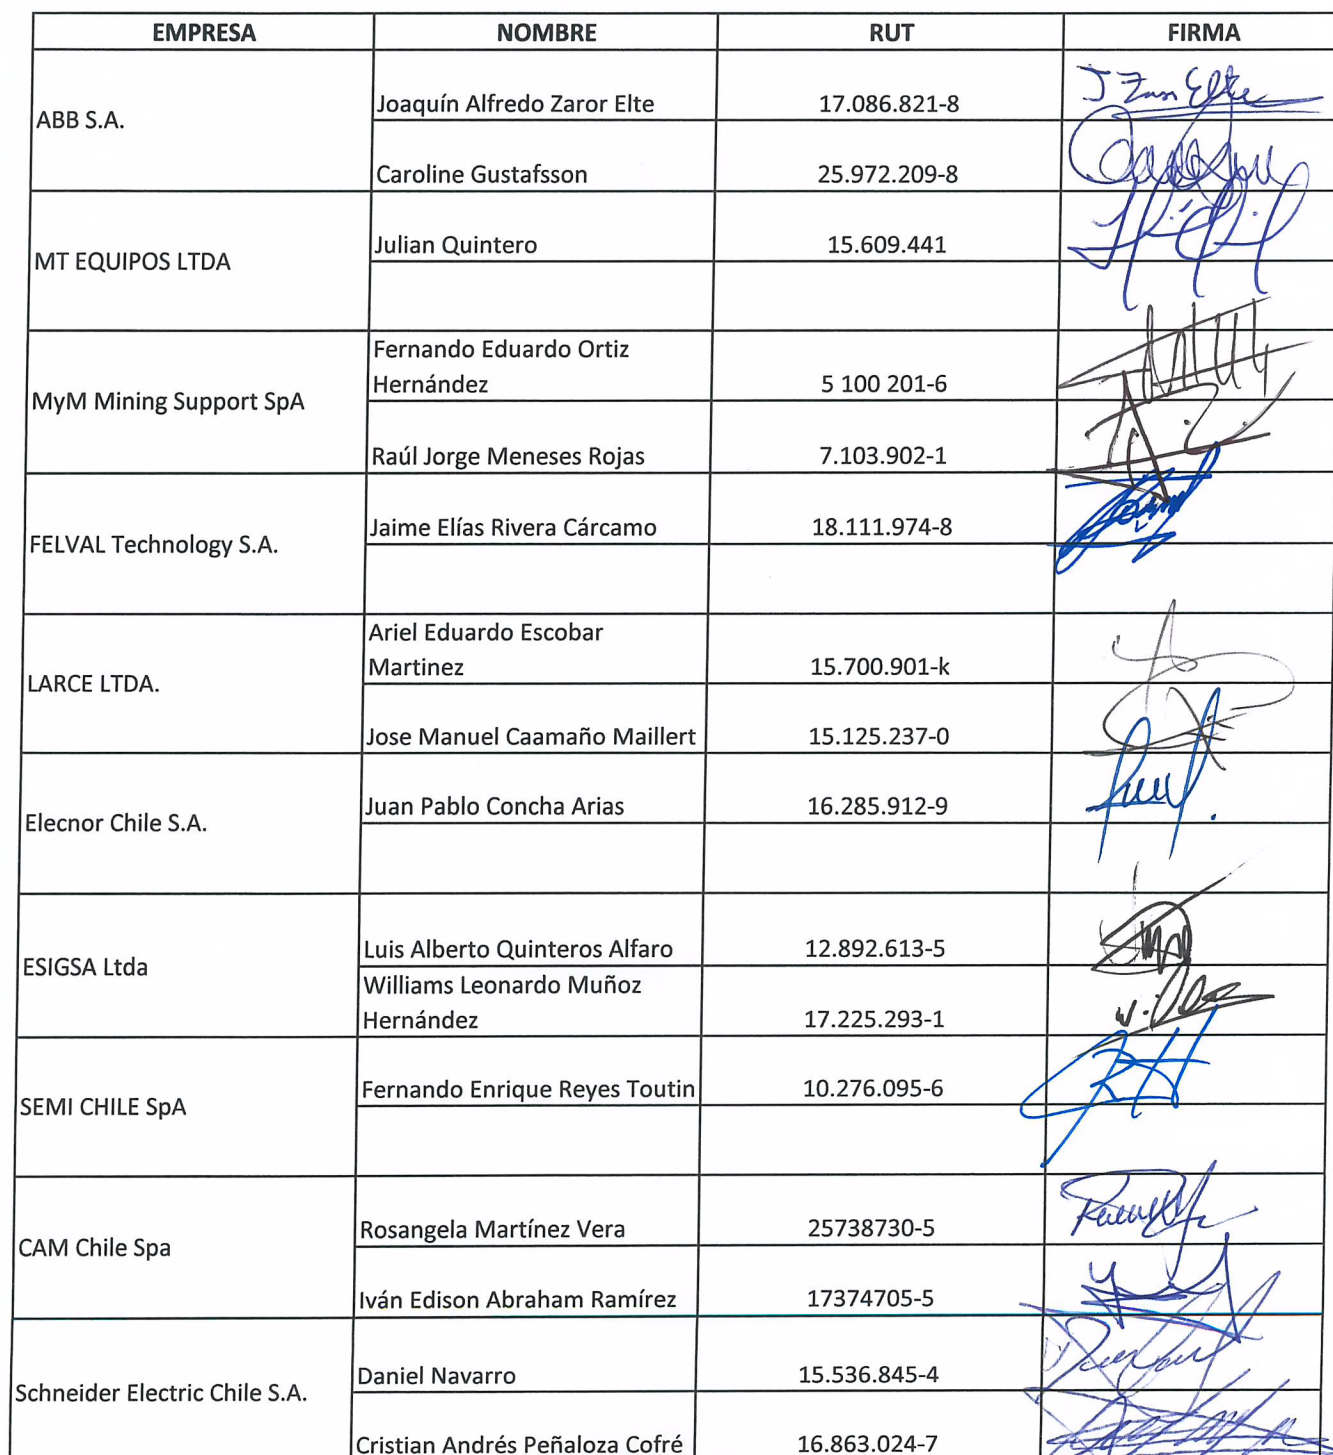 EMPRESA NOMBRE RUT FIRMA
ABB S.A.
Joaquín Alfredo Zaror Elte 17.086.821-8 J Zaror Elte
Caroline Gustafsson 25.972.209-8
MT EQUIPOS LTDA
Julian Quintero 15.609.441
MyM Mining Support SpA
Fernando Eduardo Ortiz
Hernández 5 100 201-6
Raúl Jorge Meneses Rojas 7.103.902-1
FELVAL Technology S.A.
Jaime Elías Rivera Cárcamo 18.111.974-8
LARCE LTDA.
Ariel Eduardo Escobar
Martinez 15.700.901-k
Jose Manuel Caamaño Maillert 15.125.237-0
Elecnor Chile S.A.
Juan Pablo Concha Arias 16.285.912-9
ESIGSA Ltda
Luis Alberto Quinteros Alfaro 12.892.613-5
Williams Leonardo Muñoz
Hernández 17.225.293-1
SEMI CHILE SpA
Fernando Enrique Reyes Toutin 10.276.095-6
CAM Chile Spa
Rosangela Martínez Vera 25738730-5
Iván Edison Abraham Ramírez 17374705-5
Schneider Electric Chile S.A.
Daniel Navarro 15.536.845-4
Cristian Andrés Peñaloza Cofré 16.863.024-7